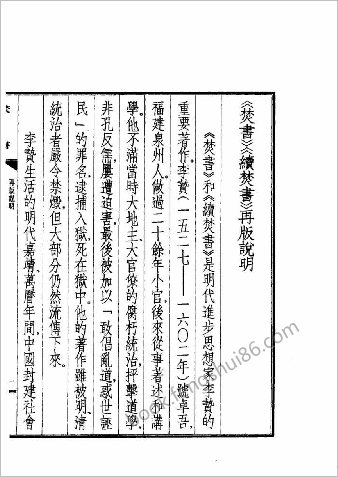 《焚書》《續焚書》再版說明
《焚書》和《續焚書》是明代進步思想家李贄的
重要著作。李贄(一五二七——一六〇二年)號卓吾,
福建泉州人,做過二十餘年小官,後來從事著述和講
學。他不滿當時大地主、大官僚的腐朽統治,抨擊道學,
非孔反儒,屢遭迫害,最後被加以「敢倡亂道,或世誣
民」的罪名,逮捕入獄,死在獄中。他的著作雖被明、清
統治者嚴令禁燬,但大部分仍然流傳下來。
李贄生活的明代嘉靖、萬曆年間,中國封建社會
再版說明
一